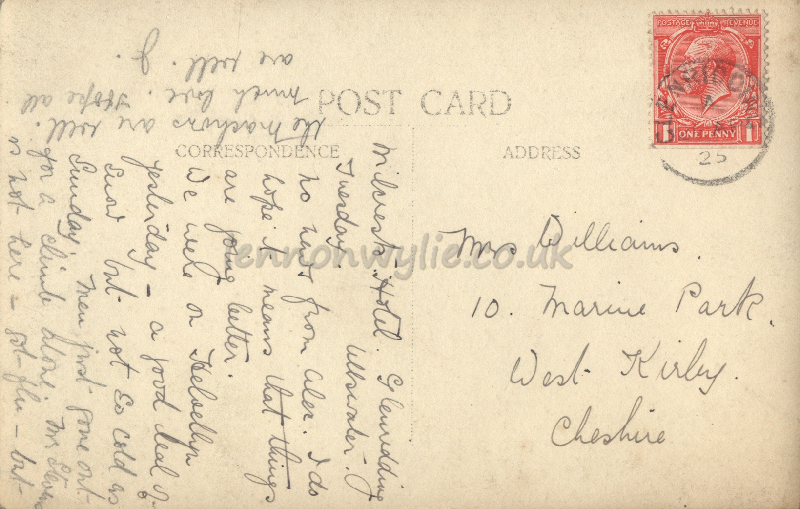 POST CARD
CORRESPONDENCE
ADDRESS
POSTAGE REVENUE
ONE PENNY
1 1
25
Hotel Glenridding
Ullswater.
Tuesday.
no news from Alec. I do
hope it means that things
are going better.
We were on Helvellyn
yesterday – a good deal of
snow but not so cold as
Sunday. Men just gone out
for a climb alone. Mr
is not here – got flu – but
the are well.
much love. Hope all
are well. J.
Mrs Williams.
10. Marine Park.
West Kirby.
Cheshire
lennonwylie.co.uk